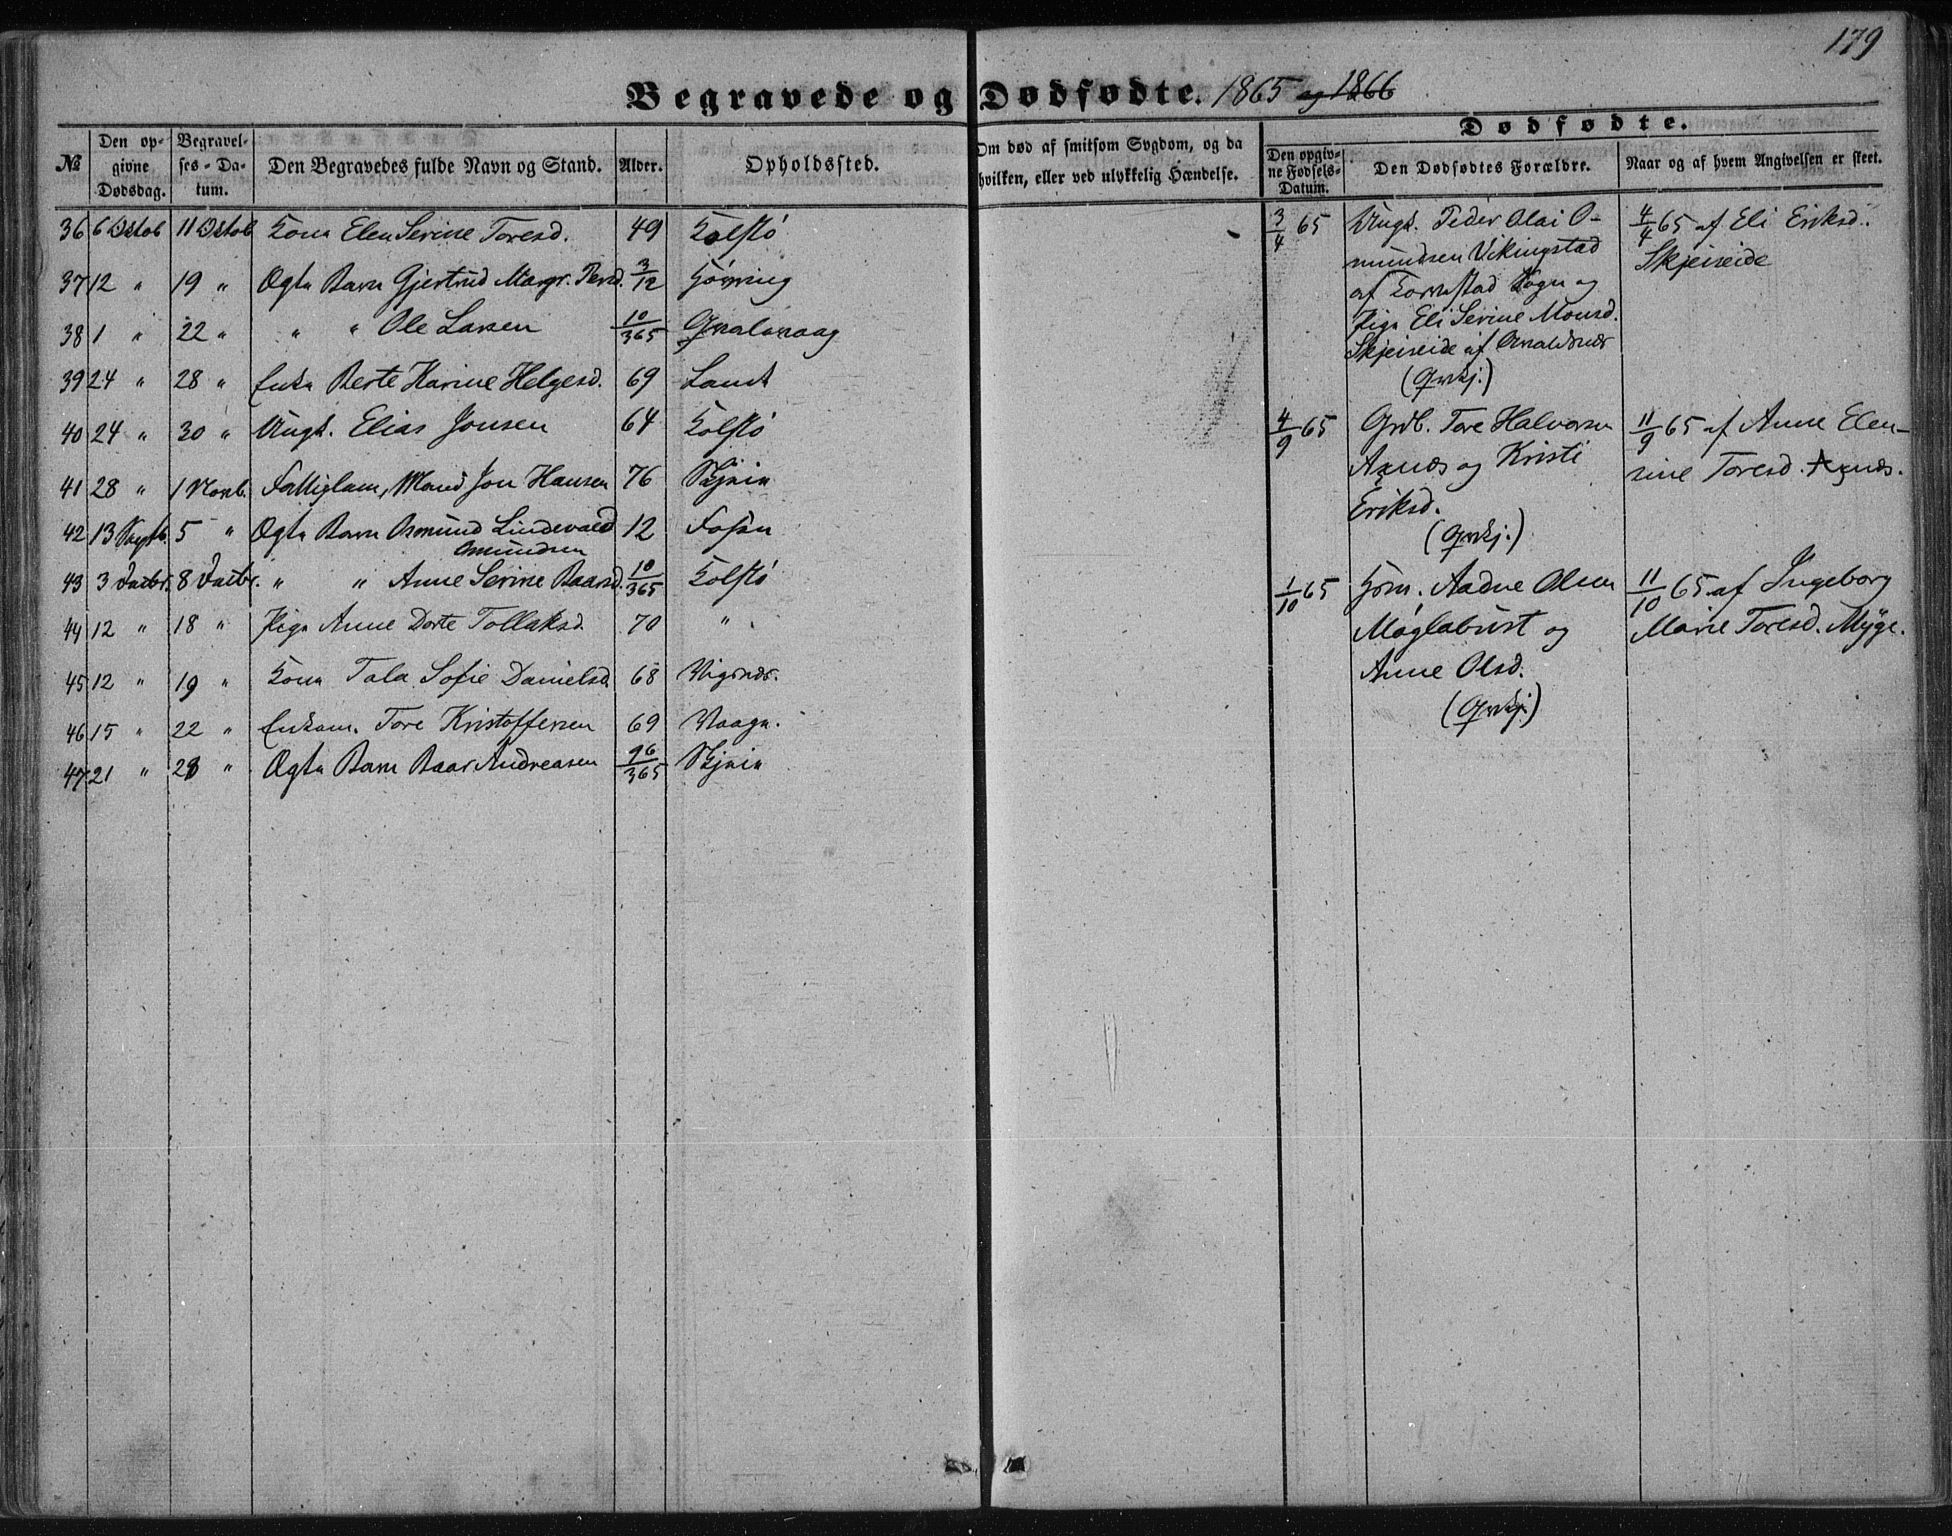 179
Begravede og Dødfødte. 1865 og 1866
Dødfødte.
№ Den opgivne Dødsdag. Begravelses-Datum. Den Begravedes fulde Navn og Stand. Alder. Opholdssted. Om død af smitsom Sygdom, og da hvilken, eller ved ulykkelig Hændelse. Den opgivne Fødsels-Datum. Den Dødfødtes Forældre. Naar og af hvem Angivelsen er skeet.
36 6 Octob 11 Octob Kone Elen Serine Toresd. 49 Kolstø
37 12 " 19 " Ægte Barn Gjertrud Margr. Persd. 3/12
38 1 " 22 " " " Ole Larsen 10/365 Gvalavaag
39 24 " 28 " Enke Berte Karine Helgesd. 69 Sand
40 24 " 30 " Ungk. Elias Jonsen 64 Kolstø
41 28 " 1 Novb. Fattiglem, Mand Jon Hansen 76
42 13 Septb. 5 " Ægte Barn Osmund Lindevald 12 Fosen
Osmundsen
43 3 Decbr. 8 Decbr. " " Anne Serine Baarsd. 10/365 Kolstø
44 12 " 18 " Pige Anne Dorte Tollaksd. 70 "
45 12 " 19 " Kone Tala Sofie Danielsd. 68 Vigsnæs.
46 15 " 22 " Enkem. Tore Kristoffersen 69 Vaage.
47 21 " 28 " Ægte Barn Baar Andreasen 96/365
3/4 65 Ungk. Peder Olai O-
mundsen Vikingstad
af Torvestad Sogn og
Pige Eli Serine Monsd.
Skjeiseide af Avaldsnæs
(Gvkj.)
4/4 65 af Eli Eriksd.
Skjeiseide
4/9 65 Grdb. Tore Halvorsen
Axnæs og Kristi
Eriksd.
(Gvkj.)
11/9 65 af Anne Elen-
sine Toresd. Axnæs.
1/10 65 Hsm. Aadne Olsen
Møglabust og
Anne Olsd.
(Gvkj.)
11/10 65 af Ingeborg
Marie Toresd. Myge.